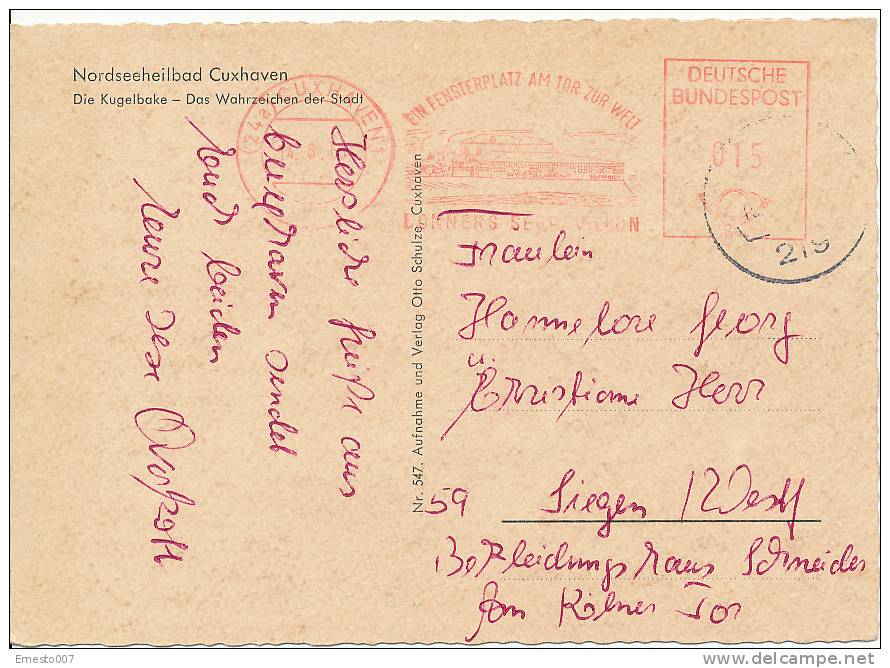 Nordseeheilbad Cuxhaven
Die Kugelbake – Das Wahrzeichen der Stadt
(24a) CUXHAVEN 1
EIN FENSTERPLATZ AM TOR ZUR WELT
RESTAURANT
DONNERS SEEPAVILLON
DEUTSCHE
BUNDESPOST
015
219
Herzliche Grüße aus
sendet
beiden
Nr. 547. Aufnahme und Verlag Otto Schulze, Cuxhaven
Fräulein
Hannelore Georg
u.
Christiane Herr
59 Siegen / Westf
Bekleidungshaus Schneider
Am Kölner Tor
Ernesto007
delcampe.net